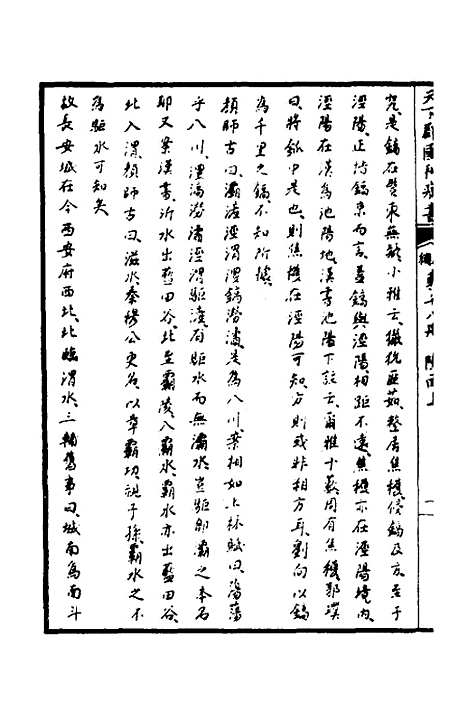 天下郡國利病書
原編第十八冊 陝西上
一
究是鎬在豐東無疑小雅云玁狁匪茹整居焦穫侵鎬及方至于
涇陽正恃鎬京而言蓋鎬與涇陽相距不遠焦穫亦在涇陽境內
涇陽在漢為池陽地漢書池陽下註云爾雅十藪周有焦穫郭璞
曰將瓠中是也則焦穫在涇陽可知方則或非相方耳劉向以鎬
為千里之鎬不知所據
顏師古曰灞滻涇渭灃鎬潦潏是為八川案相如上林賦曰蕩蕩
乎八川灃滈潦潏涇渭駆滻有駆水而無灞水豈駆即灞之本名
耶又案漢書沂水出藍田谷北至霸陵入霸水霸水亦出藍田谷
北入渭顏師古曰滋水秦穆公更名以章霸功視子孫霸水之不
為駆水可知矣
故長安城在今西安府西北北臨渭水三輔舊事曰城南為南斗